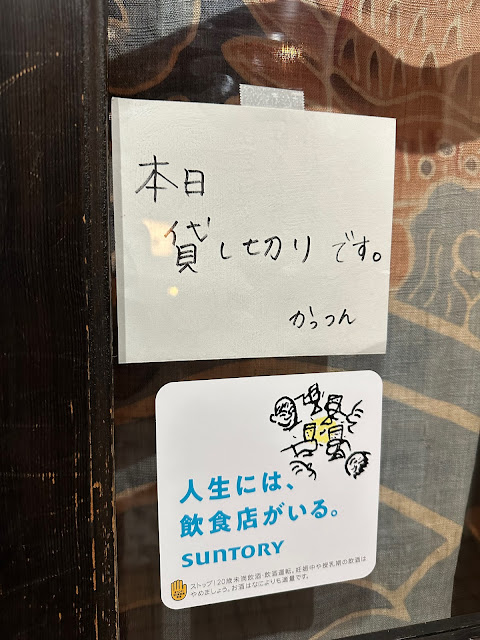 本日
貸し切りです。
かっつん
人生には、
飲食店がいる。
SUNTORY
ストップ!20歳未満飲酒・飲酒運転。妊娠中や授乳期の飲酒は
やめましょう。お酒はなによりも適量です。